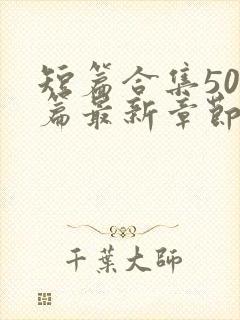 短篇合集50
篇最新章节
千葉大师